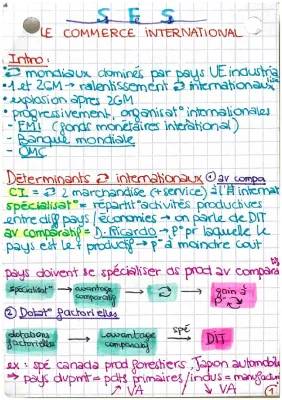 SES
LE COMMERCE INTERNATIONAL
Intro :
• ⇄ mondiaux dominés par pays UE industria
• 1 et 2GM → ralentissement ⇄ internationaux
• explosion apres 2GM
• progressivement, organisat° internationales
- FMI (fonds monétaires interational)
- Banque mondiale
- OMC
Déterminants ⇄ internationaux ① av compa
CI = ⇄ 2 marchandise (+ service) à l'# internat
spécialisat° = répartit° activités productives
entre diff pays / économies → on parle de DIT
av comparatif = D. Ricardo → p° pr laquelle le
pays est le + productif → p° à moindre cout
pays doivent se spécialiser ds prod av compara
spécialisat° → avantage comparatif → ⇄ → gain à p° ⇄
② Dotat° factorielles
dotations factorielles → avantage comparatif → spé DIT
ex : spé canada prod forestiers, Japon automobile
→ pays dvpmt = pdts primaires / indus = manufactur
↗ VA ↘ VA
1